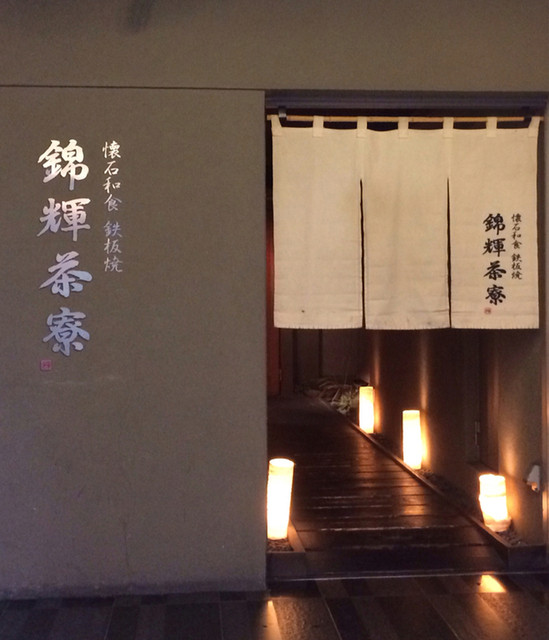 懐石和食 鉄板焼
錦輝茶寮
懐石和食 鉄板焼
錦輝茶寮